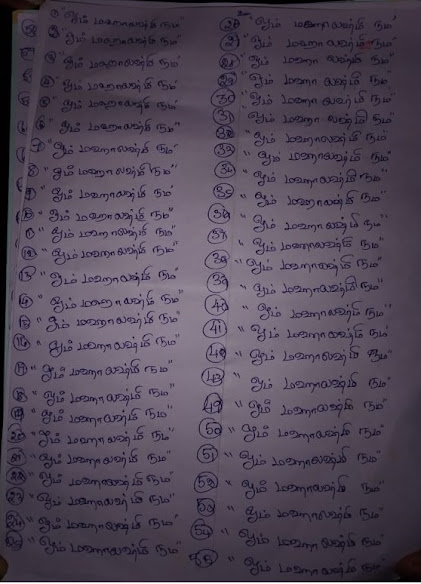 1 "ஓம் மஹாலஷ்மி நம"
2 "ஓம் மஹாலஷ்மி நம"
3 "ஓம் மஹாலஷ்மி நம"
4 "ஓம் மஹாலஷ்மி நம"
5 "ஓம் மஹாலஷ்மி நம"
6 "ஓம் மஹாலஷ்மி நம"
7 "ஓம் மஹாலஷ்மி நம"
8 "ஓம் மஹாலஷ்மி நம"
9 "ஓம் மஹாலஷ்மி நம"
10 "ஓம் மஹாலஷ்மி நம"
11 "ஓம் மஹாலஷ்மி நம"
12 "ஓம் மஹாலஷ்மி நம"
13 "ஓம் மஹாலஷ்மி நம"
14 "ஓம் மஹாலஷ்மி நம"
15 "ஓம் மஹாலஷ்மி நம"
16 "ஓம் மஹாலஷ்மி நம"
17 "ஓம் மஹாலஷ்மி நம"
18 "ஓம் மஹாலஷ்மி நம"
19 "ஓம் மஹாலஷ்மி நம"
20 "ஓம் மஹாலஷ்மி நம"
21 "ஓம் மஹாலஷ்மி நம"
22 "ஓம் மஹாலஷ்மி நம"
23 "ஓம் மஹாலஷ்மி நம"
24 "ஓம் மஹாலஷ்மி நம"
25 "ஓம் மஹாலஷ்மி நம"
26 "ஓம் மஹாலஷ்மி நம"
27 "ஓம் மஹாலஷ்மி நம"
28 "ஓம் மஹாலஷ்மி நம"
29 "ஓம் மஹாலஷ்மி நம"
30 "ஓம் மஹாலஷ்மி நம"
31 "ஓம் மஹாலஷ்மி நம"
32 "ஓம் மஹாலஷ்மி நம"
33 "ஓம் மஹாலஷ்மி நம"
34 "ஓம் மஹாலஷ்மி நம"
35 "ஓம் மஹாலஷ்மி நம"
36 "ஓம் மஹாலஷ்மி நம"
37 "ஓம் மஹாலஷ்மி நம"
38 "ஓம் மஹாலஷ்மி நம"
39 "ஓம் மஹாலஷ்மி நம"
40 "ஓம் மஹாலஷ்மி நம"
41 "ஓம் மஹாலஷ்மி நம"
42 "ஓம் மஹாலஷ்மி நம"
43 "ஓம் மஹாலஷ்மி நம"
49 "ஓம் மஹாலஷ்மி நம"
50 "ஓம் மஹாலஷ்மி நம"
51 "ஓம் மஹாலஷ்மி நம"
52 "ஓம் மஹாலஷ்மி நம"
53 "ஓம் மஹாலஷ்மி நம"
54 "ஓம் மஹாலஷ்மி நம"
55 "ஓம் மஹாலஷ்மி நம"